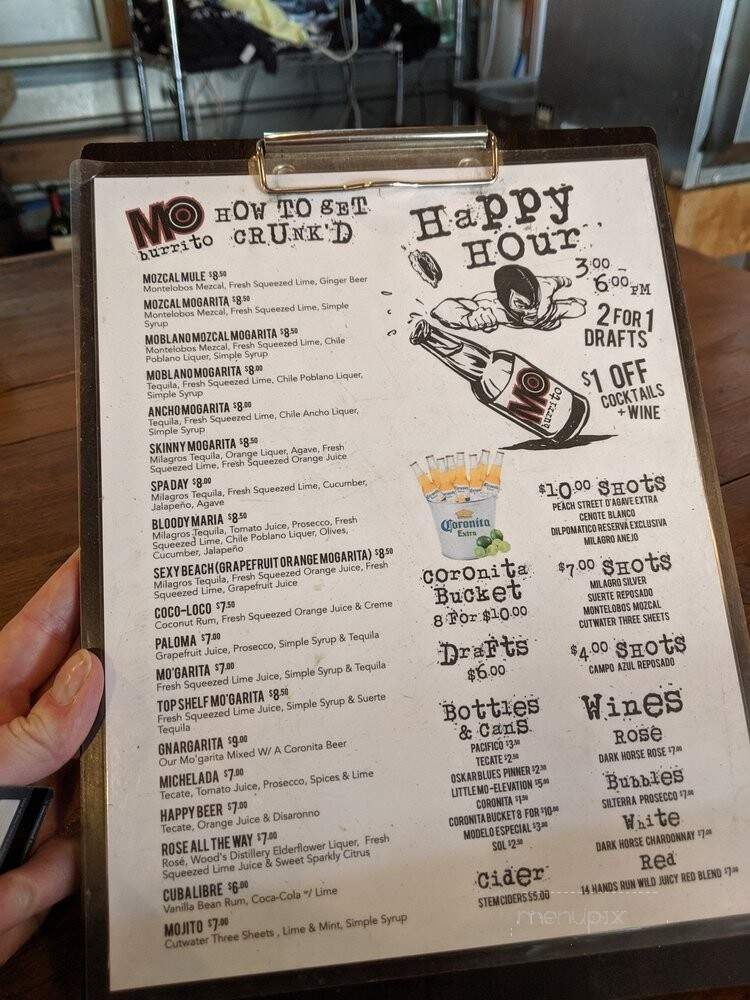 MO
burrito
HOW TO GET
CRUNK'D
MOZCAL MULE $8.50
Montelobos Mezcal, Fresh Squeezed Lime, Ginger Beer
MOZCAL MOGARITA $8.50
Montelobos Mezcal, Fresh Squeezed Lime, Simple
Syrup
MOBLANO MOZCAL MOGARITA $8.50
Montelobos Mezcal, Fresh Squeezed Lime, Chile
Poblano Liquer, Simple Syrup
MOBLANO MOGARITA $8.00
Tequila, Fresh Squeezed Lime, Chile Poblano Liquer,
Simple Syrup
ANCHO MOGARITA $8.00
Tequila, Fresh Squeezed Lime, Chile Ancho Liquer,
Simple Syrup
SKINNY MOGARITA $8.50
Milagros Tequila, Orange Liquer, Agave, Fresh
Squeezed Lime, Fresh Squeezed Orange Juice
SPA DAY $8.00
Milagros Tequila, Fresh Squeezed Lime, Cucumber,
Jalapeño, Agave
BLOODY MARIA $8.50
Milagros Tequila, Tomato Juice, Prosecco, Fresh
Squeezed Lime, Chile Poblano Liquer, Olives,
Cucumber, Jalapeño
SEXY BEACH (GRAPEFRUIT ORANGE MOGARITA) $8.50
Milagros Tequila, Fresh Squeezed Orange Juice, Fresh
Squeezed Lime, Grapefruit Juice
COCO-LOCO $7.50
Coconut Rum, Fresh Squeezed Orange Juice & Creme
PALOMA $7.00
Grapefruit Juice, Prosecco, Simple Syrup & Tequila
MO'GARITA $7.00
Fresh Squeezed Lime Juice, Simple Syrup & Tequila
TOP SHELF MO'GARITA $8.50
Fresh Squeezed Lime Juice, Simple Syrup & Suerte
Tequila
GNARGARITA $9.00
Our Mo'garita Mixed W/ A Coronita Beer
MICHELADA $7.00
Tecate, Tomato Juice, Prosecco, Spices & Lime
HAPPY BEER $7.00
Tecate, Orange Juice & Disaronno
ROSE ALL THE WAY $7.00
Rosé, Wood's Distillery Elderflower Liquer, Fresh
Squeezed Lime Juice & Sweet Sparkly Citrus
CUBA LIBRE $6.00
Vanilla Bean Rum, Coca-Cola w/ Lime
MOJITO $7.00
Cutwater Three Sheets , Lime & Mint, Simple Syrup
Happy
HOur
3:00 -
6:00 PM
2 FOR 1
DRAFTS
$1 OFF
COCKTAILS
+ WINE
MO
burrito
Coronita
Extra
corOnita
Bucket
8 For $10.00
DraFts
$6.00
Bottles
& Cans
PACIFICO $3.50
TECATE $2.50
OSKAR BLUES PINNER $2.50
LITTLE MO-ELEVATION $5.00
CORONITA $1.50
CORONITA BUCKET 8 FOR $10.00
MODELO ESPECIAL $3.00
SOL $2.50
Cider
STEM CIDERS $5.00
$10.00 SHOts
PEACH STREET D'AGAVE EXTRA
CENOTE BLANCO
DILPOMATICO RESERVA EXCLUSIVA
MILAGRO ANEJO
$7.00 SHOts
MILAGRO SILVER
SUERTE REPOSADO
MONTELOBOS MOZCAL
CUTWATER THREE SHEETS
$4.00 SHOts
CAMPO AZUL REPOSADO
Wines
Rose
DARK HORSE ROSE $7.00
Bubbles
SILTERRA PROSECCO $7.00
White
DARK HORSE CHARDONNAY $7.00
Red
14 HANDS RUN WILD JUICY RED BLEND $7.00
menupix